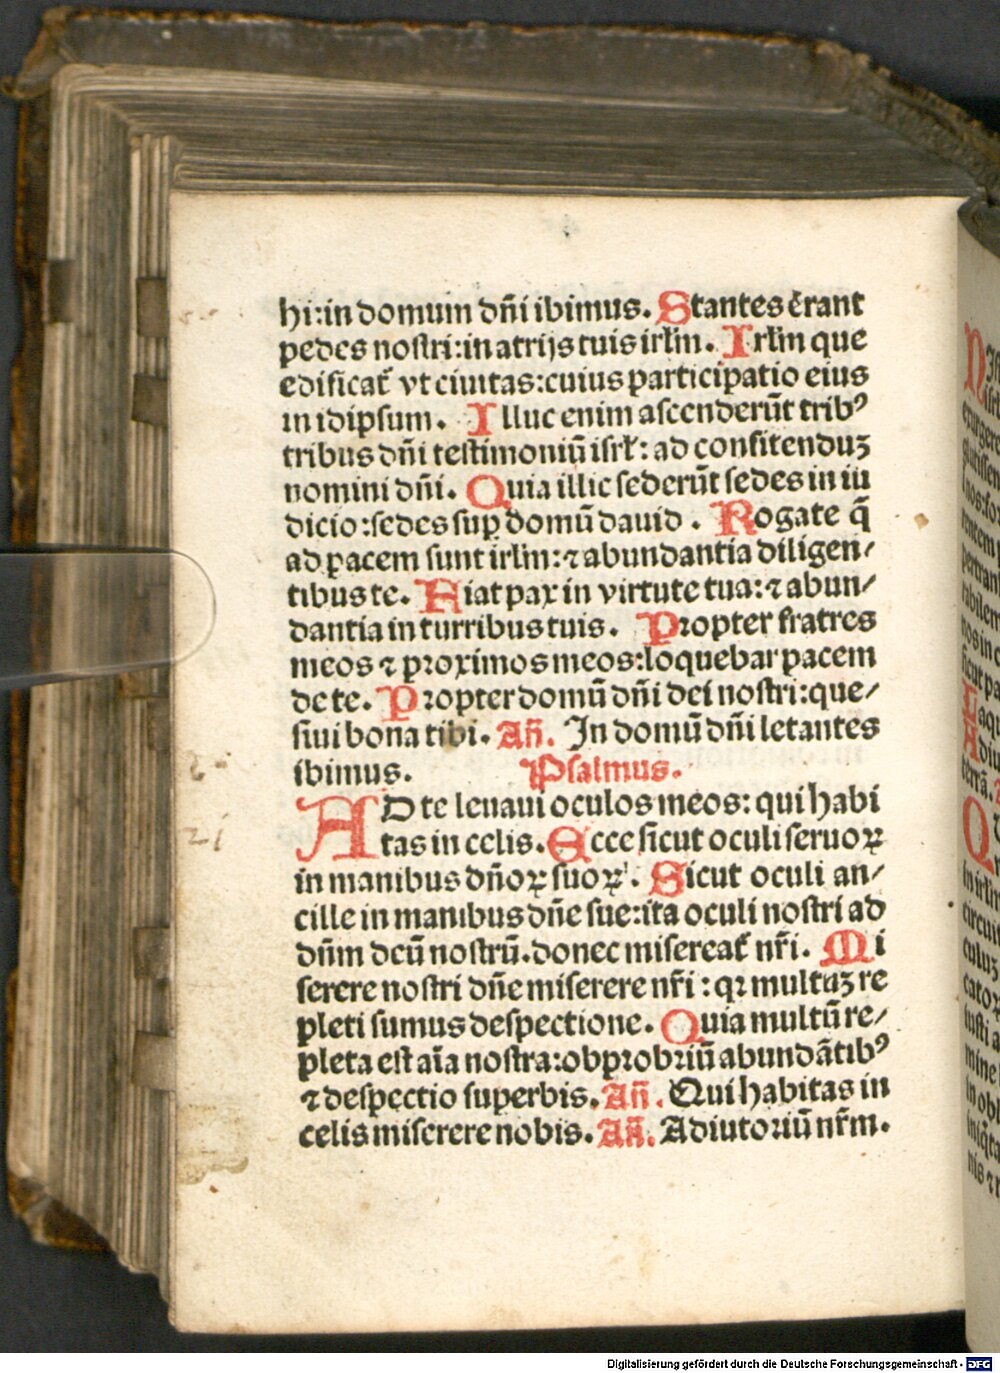 hi:in domum dn̄i ibimus. Stantes ērant
pedes nostri:in atrijs tuis irľm. Irľm que
edificat̄ vt ciuitas:cuius participatio eius
in idipsum. Illuc enim ascenderūt tribꝰ
tribus dn̄i testimoniū isrľ: ad confitenduꝫ
nomini dn̄i. Quia illic sederūt sedes in iu
dicio:sedes suꝑ domū dauid. Rogate q̄
ad pacem sunt irľm:⁊ abundantia diligen/
tibus te. Fiat pax in virtute tua:⁊ abun/
dantia in turribus tuis. Propter fratres
meos ⁊ proximos meos:loquebar pacem
de te. Propter domū dn̄i dei nostri:que/
siui bona tibi. Añ. In domū dn̄i letantes
ibimus. Psalmus.
AD te leuaui oculos meos: qui habi
tas in celis. Ecce sicut oculi seruoꝝ
in manibus dn̄oꝝ suoꝝ. Sicut oculi an/
cille in manibus dn̄e sue:ita oculi nostri ad
dn̄m deū nostrū.donec misereat̄ nr̄i. Mi
serere nostri dn̄e miserere nr̄i: qꝛ multuꝫ re
pleti sumus despectione. Quia multū re/
pleta est aīa nostra:obprobriū abundātibꝰ
⁊ despectio superbis. Añ. Qui habitas in
celis miserere nobis. Añ. Adiutoriū nr̄m.
21
Digitalisierung gefördert durch die Deutsche Forschungsgemeinschaft - DFG